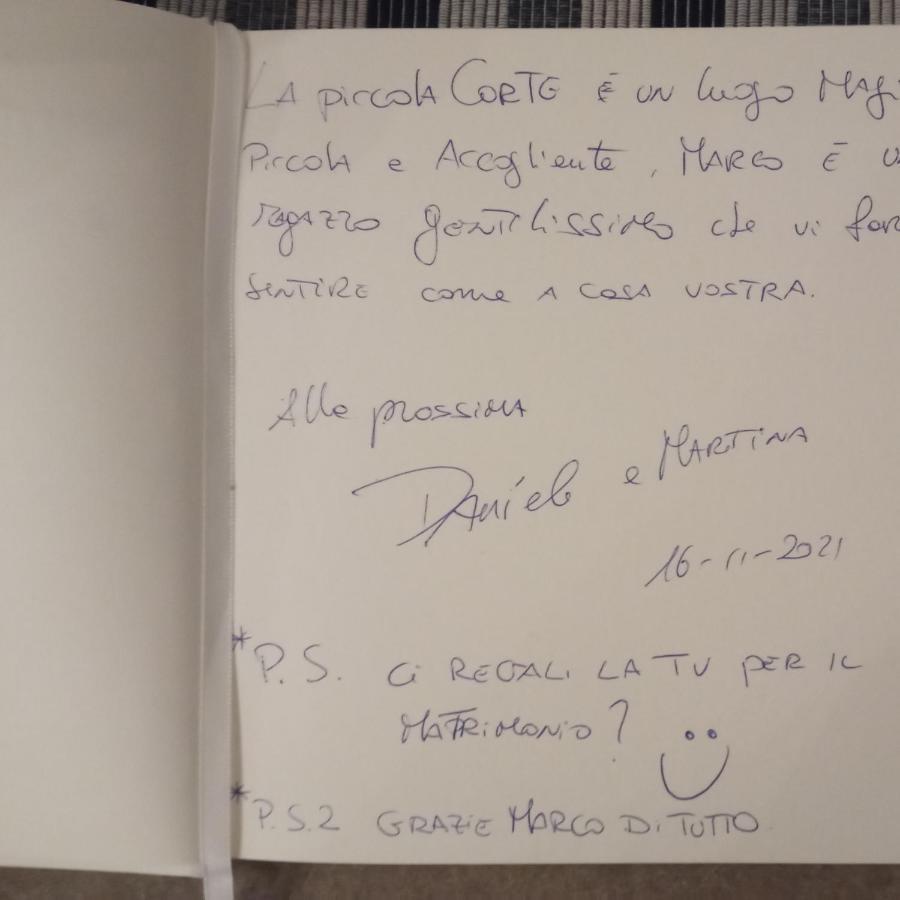 LA piccola CORTE È UN luogo MAGI
Piccola e Accogliente, MARCO È U
ragazzo gentilissimo che vi far
SENTIRE come A CASA VOSTRA.
Alla prossima
Daniele e MARTINA
16-11-2021
*P.S. Ci REGALI LA TV PER IL
MATRIMONIO?
*P.S.2 GRAZIE MARCO Di TUTTO